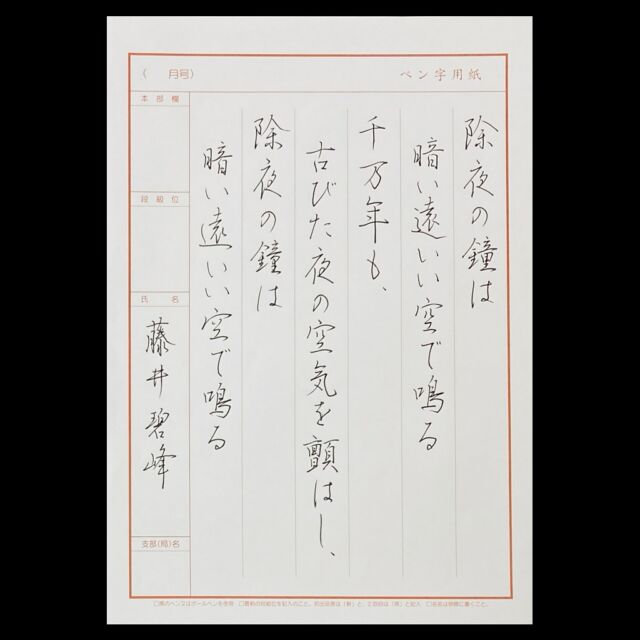 (　月号)
ペン字用紙
除夜の鐘は
暗い遠いい空で鳴る
千万年も、
古びた夜の空気を顫はし、
除夜の鐘は
暗い遠いい空で鳴る
本部欄
段級位
氏名
藤井碧峰
支部(局)名